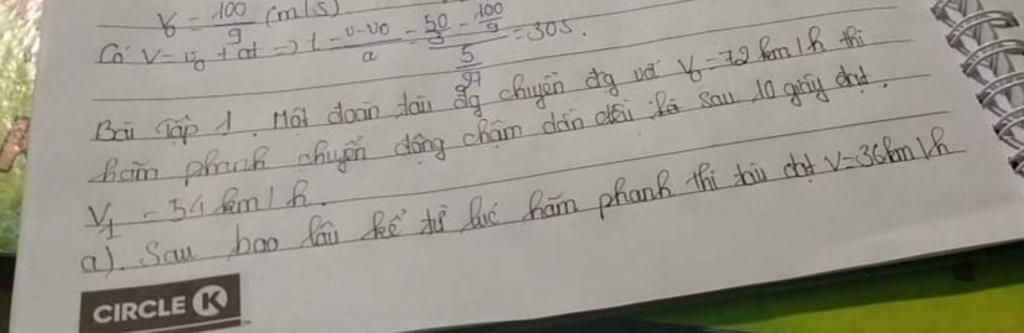 V₀ = 100/9 (m/s)
Có V = v₀ + at => t = (v - v₀)/a = (50/9 - 100/9)/(5/27) = 30s.
Bài Tập 1. Một đoàn tàu đg chuyển đg với V₀ = 72 km/h thì
hãm phanh chuyển động chậm dần đều, sau 10 giây đạt
V₁ = 54 km/h.
a). Sau bao lâu kể từ lúc hãm phanh thì tàu đạt V = 36 km/h
CIRCLE K